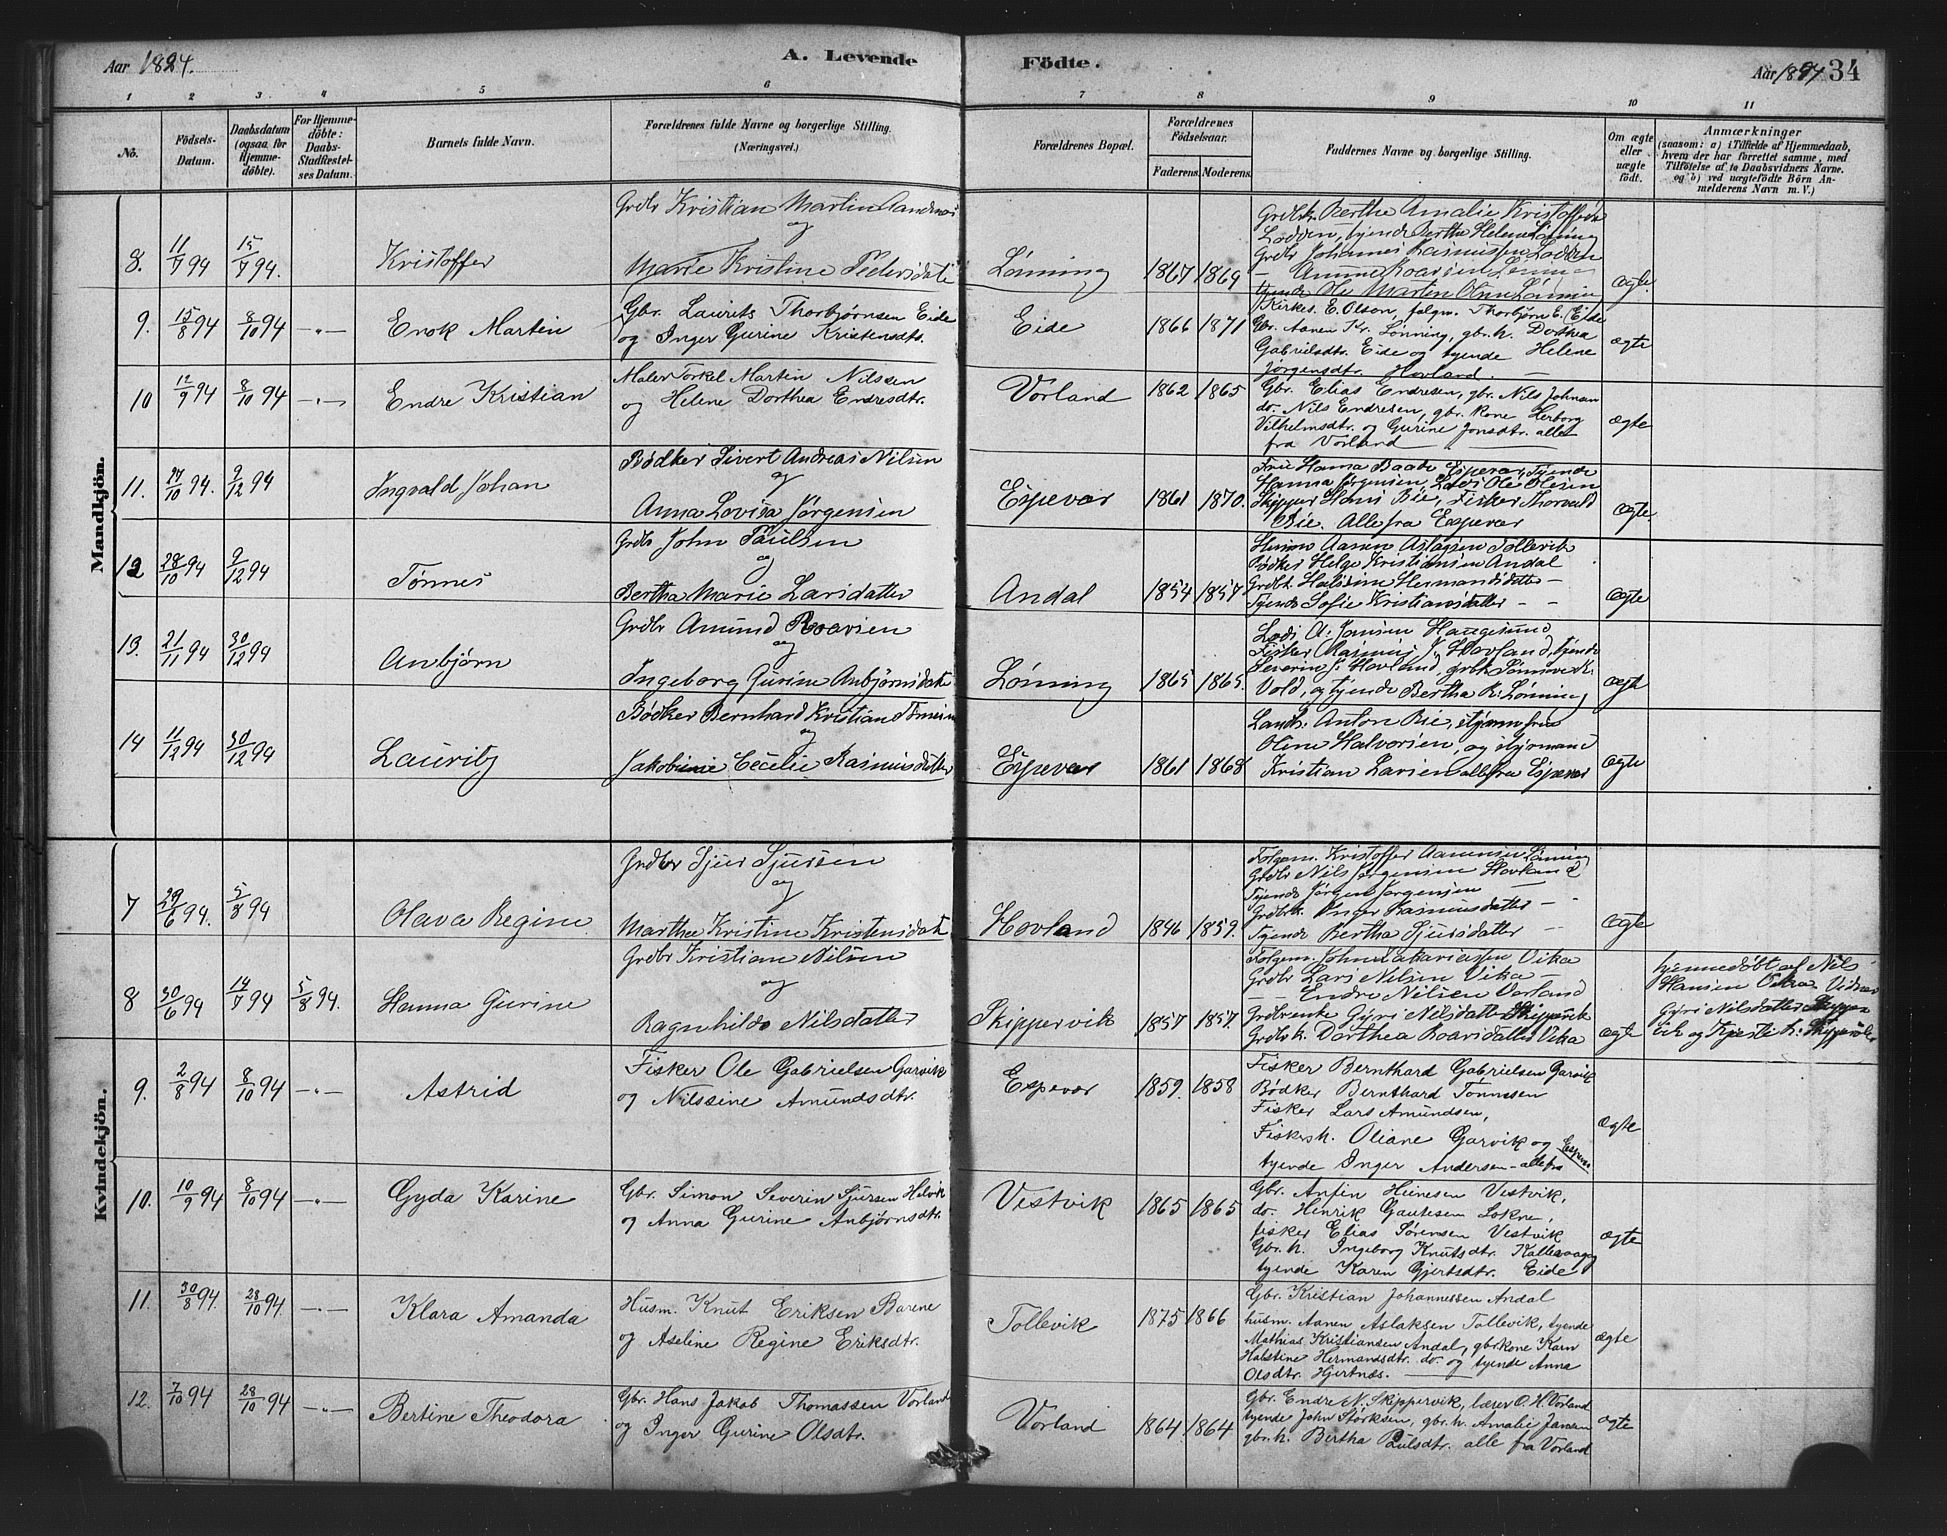 Aar 1894.
A. Levende
Födte.
Aar 1894
34
1 2 3 4 5 6 7 8 9 10 11
No.
Födsels-Datum.
Daabsdatum (ogsaa for Hjemmedöbte).
For Hjemmedöbte: Daabs-Stadfæstelses Datum.
Barnets fulde Navn.
Forældrenes fulde Navne og borgerlige Stilling. (Næringsvei.)
Forældrenes Bopæl.
Forældrenes Födselsaar.
Faderens. Moderens.
Faddernes Navne og borgerlige Stilling.
Om ægte eller uægte födt.
Anmærkninger
(saasom: a) i Tilfælde af Hjemmedaab, hvem der har forrettet samme, med Tilföielse af to Daabsvidners Navne. og b) ved uægtefödte Börn Anmelderens Navn m. V.)
Mandkjön.
8. 11/7 94 15/7 94. Kristoffer
Grdbr Kristian Martin
og
Marie Kristine Pedersdatt
Lønning 1867 1869
Grdbk. Berthe Amalie
Lodden, tjende Berthe Helene Lønning
Grdbr Johannes Rasmussen Lodden
Ole Martin
ægte.
9. 15/8 94 8/10 94 -"- Enok Martin
Gbr. Laurits Thorbjørnsen Eide
og Inger Gurine Kristensdtr.
Eide 1866 1871
Kirkes. E. Olson, folgm. Thorbjørn E. Eide
Gbr. Aanen Kr. Lønning, gb. h. Dorthea
Gabrielsdtr. Eide og tyende Helene
Jørgensdtr. Hovland. -
ægte
10 12/9 94 8/10 94 -"- Endre Kristian
Maler Torkel Martin Nilssen
og Helene Dorthea Endresdtr.
Vorland 1862 1865
Gbr. Elias Endresen, gbr. Nils Johnsen
do. Nils Endresen, gbr. kone Herborg
Vilhelmsdtr. og Gurine Jonsdtr. alle
fra Vorland
ægte
11. 27/10 94. 9/12 94 Ingvald Johan
Bødker Sivert Andreas Nilsen
og
Anna Lovisa Jørgensen
Espevær 1861 1870.
Hanna Baabe Espevær, Tjende
Hanna Jørgensen, Lods Ole Olsen
Skipper Hans Bie, Fisker Thorvald
Bie. Alle fra Espevær
ægte.
12 28/10 94 9/12 94 Tønnes
Grdbr John Paulsen
og
Bertha Marie Larsdatter
Andal 1854 1857
Husm Aanen Aslagsen Tollevik
Bødker Helge Kristiansen Andal
Grdbk. Halstine Hermansdatter -
Tjende Sofie Kristiansdatter - -
ægte
13. 21/11 94 30/12 94 Anbjørn
Grdbr Amund Roarsen
og
Ingeborg Gurine Anbjørnsdatt
Lønning 1865 1865.
Lods A. Jansen Haugesund
Fisker Rasmus J. Hovland, tjende
Severin J. Hovland,
Vold, og tjende Bertha R. Lønning
ægte
14 11/12 94 30/12 94 Lauritz
Bødker Bernhard Kristian Tønnesen
og
Jakobine Cecelie Rasmusdatter
Espevær 1861 1868
Landh. Anton Bie,
Oline Halvorsen, og
Kristian Larsen alle fra Espevær
ægte
Kvindekjön.
7 29/6 94. 5/8 94 Olava Regine
Grdbr Sjur Sjursen
og
Marthe Kristine Kristensdatt
Hovland 1846 1859.
Folgem. Kristoffer Aanensen Lønning
Grdbr Nils Jørgensen Hovland
Tjende Jørgen Jørgensen -
Grdbrk. Inger Rasmusdatter -
Tyende Bertha Sjursdatter -
ægte
8 30/6 94 14/7 94 5/8 94. Hanna Gurine
Grdbr Kristian Nilsen
og
Ragnhilde Nilsdatter
Skippervik 1857 1857.
Folgem. John Zakariassen Vika
Grdbr Lars Nilsen Vika -
- Endre Nilsen Vorland
Grdbrenke Gyri Nilsdatter Skippervik
Grdbrk. Dorthea Roarsdatter Vika
ægte
hjemmedøbt af Nils
Hansen Vidner
Gyri Nilsdatter Skipper
vik og
9. 2/8 94 8/10 94 -"- Astrid
Fisker Ole Gabrielsen Garvik
og Nilssine Amundsdtr.
Espevær 1859. 1858
Fisker Bernthard Gabrielsen Garvik
Bødker Bernthard Tønnesen
Fisker Lars Amundsen,
Fiskersk. Oliane Garvik og
tyende Inger Andersen - alle fra Espevær
ægte
10. 10/9 94 8/10 94 -"- Gyda Karine
Gbr. Simon Severin Sjursen Helvik
og Anna Gurine Anbjørnsdtr.
Vestvik 1865 1865
Gbr. Anfin Heinesen Vestvik,
do. Henrik Gautesen Lokne,
fisker Elias Sørensen Vestvik
Gbr. h. Ingeborg Knutsdtr. Kallevaag
tyende Karen Gjertsdtr. Eide
ægte
11. 30/8 94. 28/10 94. -"- Klara Amanda
Husm. Knut Eriksen Barene
og Aseline Regine Eriksdtr.
Tollevik 1875 1866
Gbr. Kristian Johannessen Andal
husm. Aanen Aslaksen Tollevik, tyende
Mathias Kristiansen Andal, gbr. kone Karn
Halstine Hermansdtr. do. og tyende Anna
Olsdtr. Hjertnæs.
ægte
12. 7/10 94 28/10 94 -"- Bertine Theodora
Gbr. Hans Jakob Thomassen Vorland
og Inger Gurine Olsdtr.
Vorland 1864. 1864
Gbr. Endre N. Skippervik, lærer O. H. Vorland
tyende John Størksen, gbr. h. Amalie Jansen
gbr. h. Bertha Pulsdtr. alle fra Vorland
ægte